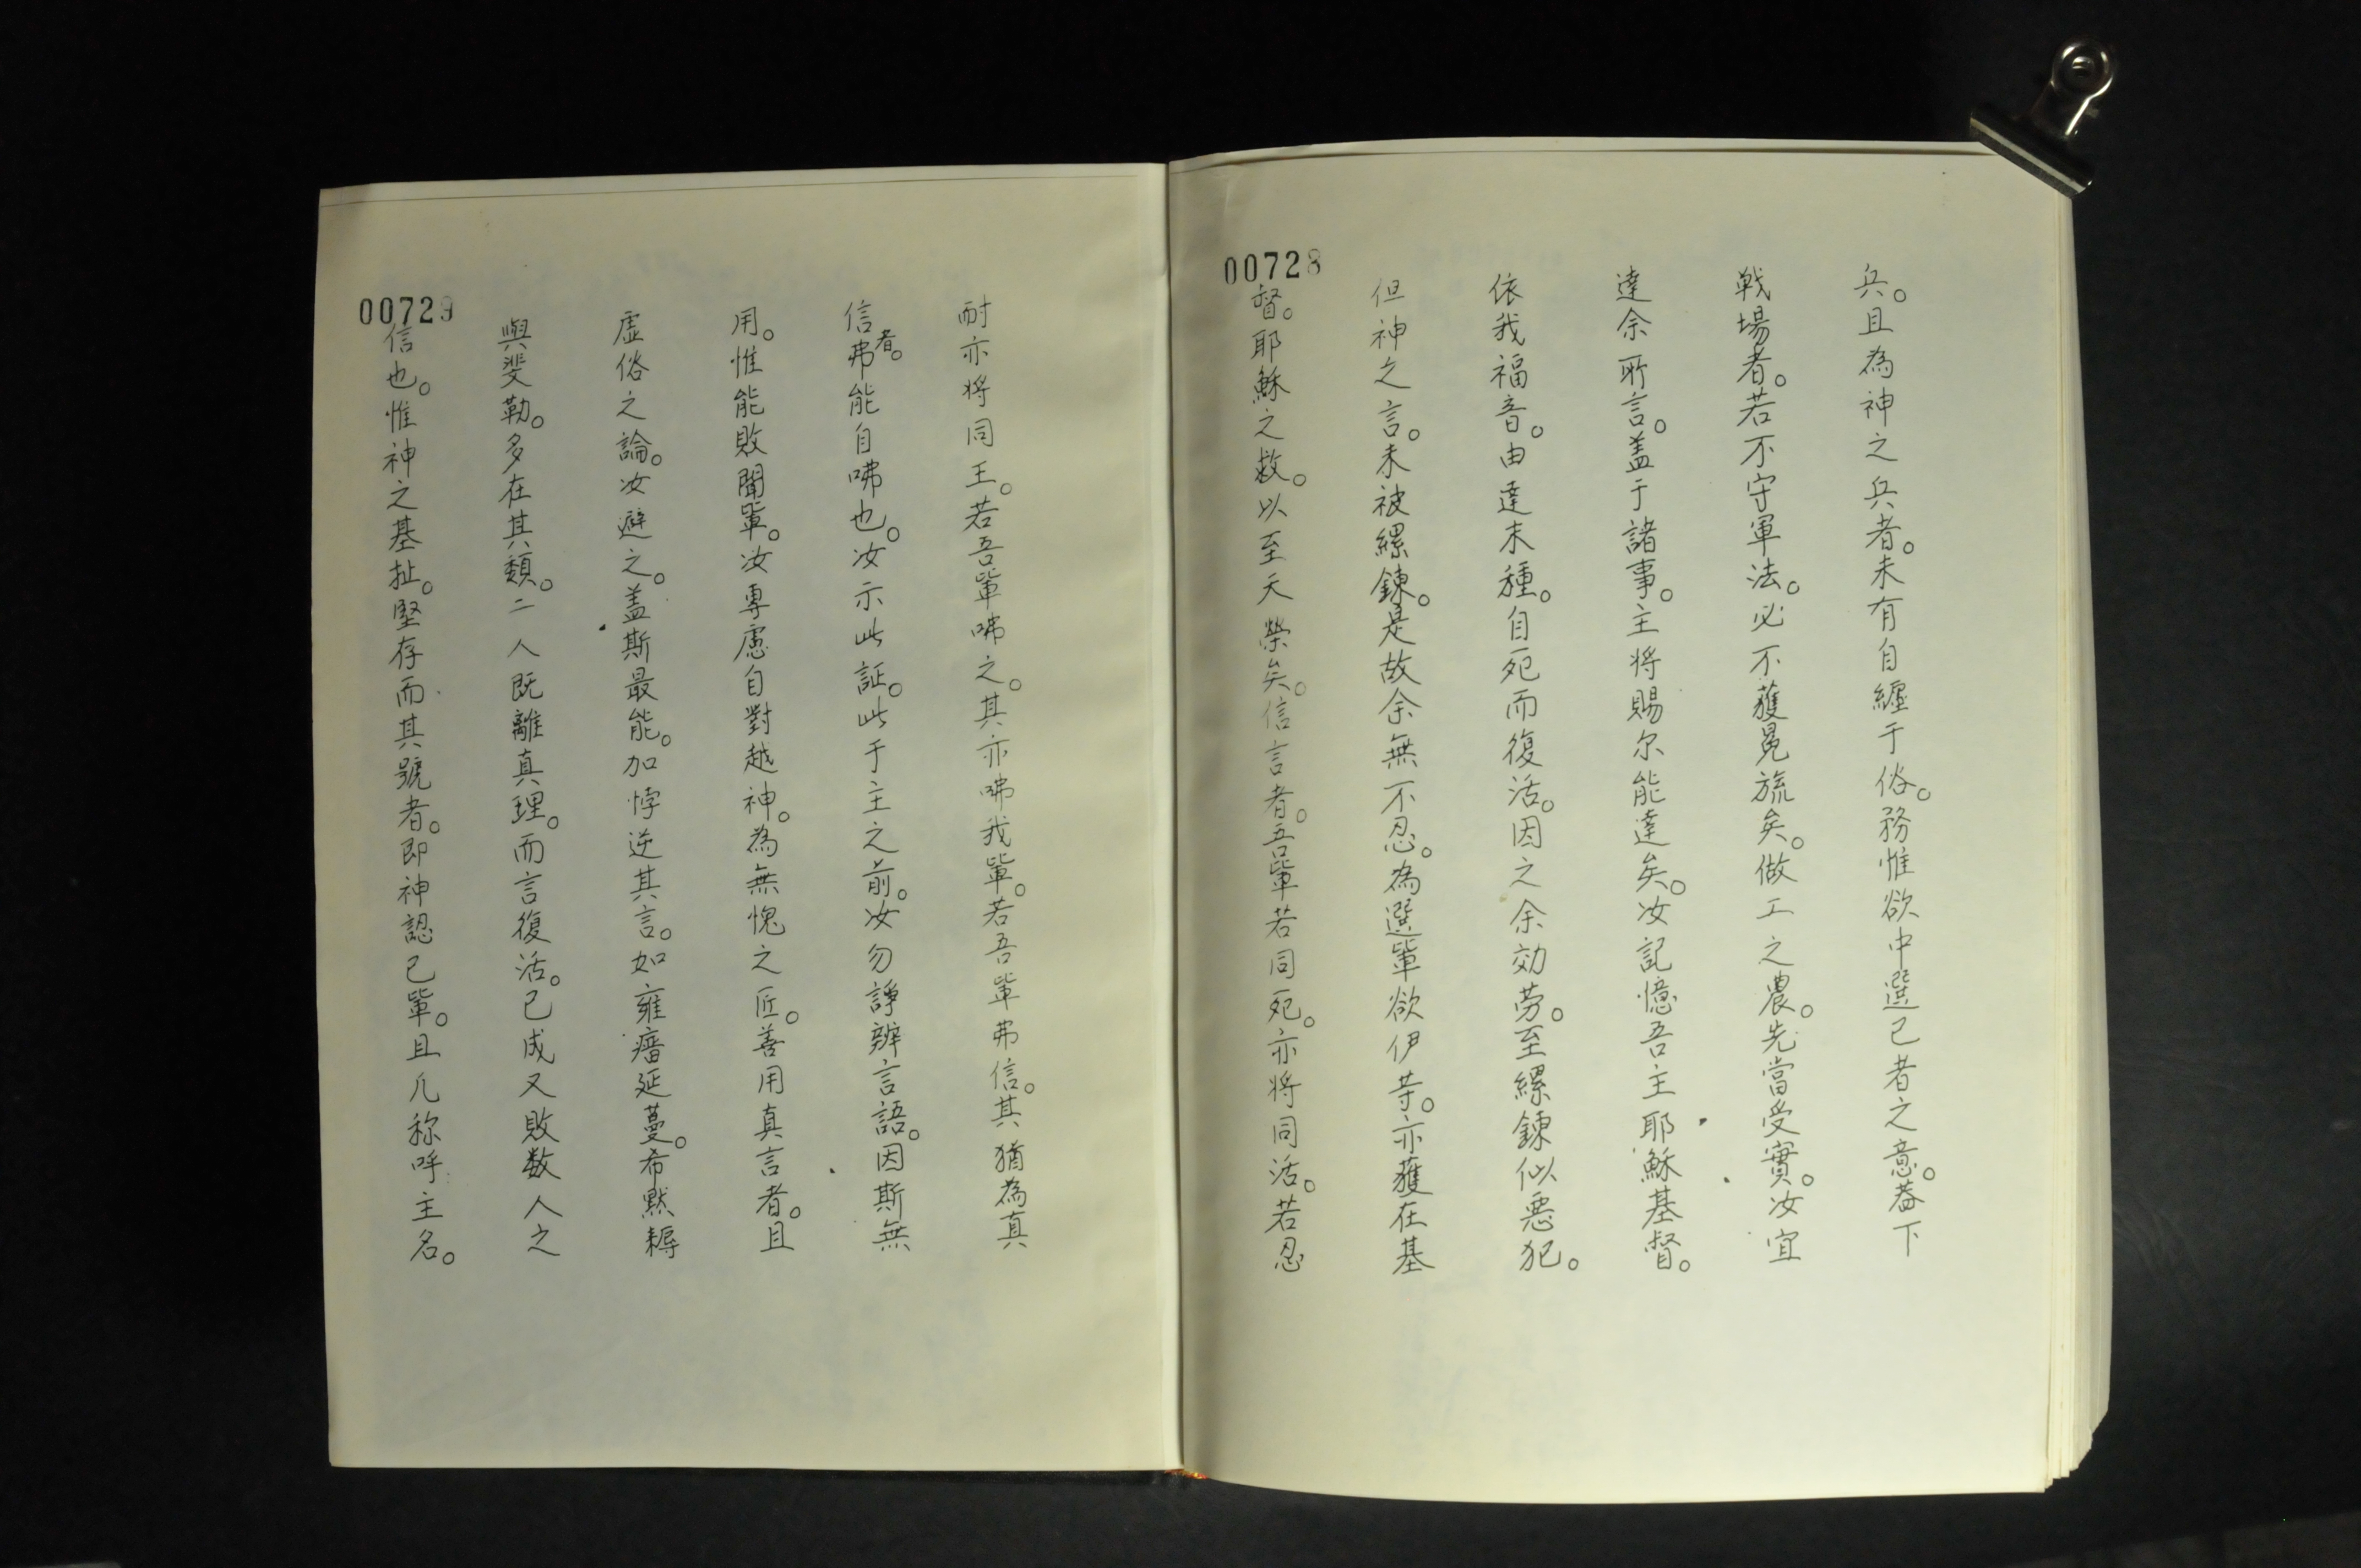 兵。且為神之兵者。未有自纏于俗。務惟欲中選己者之意。蓋下
戰場者。若不守軍法。必不獲冕旒矣。做工之農。先當受實。汝宜
達余所言。盖于諸事。主将賜尔能達矣。汝記憶吾主耶穌基督。
依我福音。由達未種。自死而復活。因之余効劳。至縲鍊似惡犯。
但神之言。未被縲鍊。是故余無不忍。為選軰欲伊等。亦獲在基
00728
督。耶穌之救。以至天榮矣。信言者。吾軰若同死。亦将同活。若忍
耐亦将同王。若吾軰咈之。其亦咈我軰。若吾軰弗信。其猶為真
信者。弗能自咈也。汝示此証。此于主之前。汝勿諍辦言語。因斯無
用。惟能敗聞軰。汝專慮自對越神。為無愧之匠。善用真言者。且
虛俗之論。汝避之。盖斯最能。加悖逆其言。如癰癧延蔓。希黙耨
與斐勒。多在其類。二人既離真理。而言復活。已成又敗数人之
00729
信也。惟神之基址。堅存而其號者。即神認己軰。且凢称呼主名。